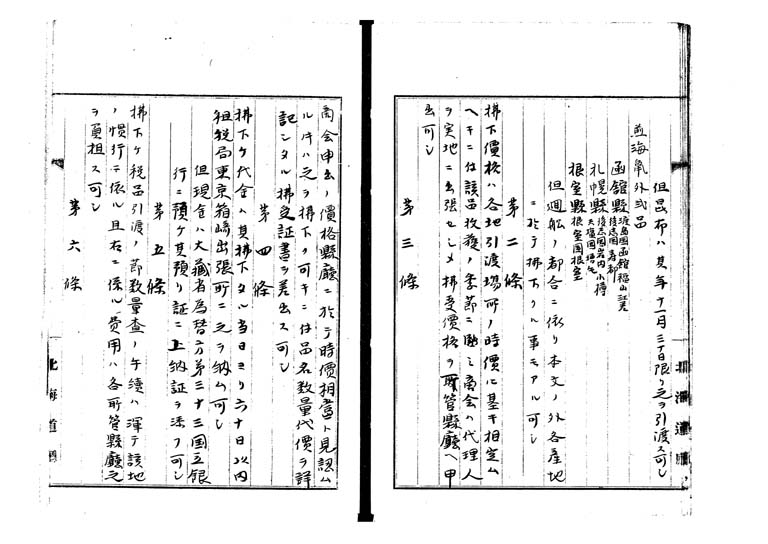 但昆布ハ其年十一月三十日限リ之ヲ引渡ス可シ
煎海鼠外弐品
函館縣 渡島國函館福山江差 後志國壽都
札幌縣 後志國岩内小樽 天塩國
根室縣 根室國根室
但廻船ノ都合ニ依リ本文ノ外各産地
ニ於テ拂下クル事モアル可シ
第二條
拂下價格ハ各地引渡場所ノ時價ニ基キ相定ム
ヘキニ付該品收獲ノ季節ニ臨ミ商会ハ代理人
ヲ実地ニ出張セシメ拂受價格ヲ所管縣廳ヘ申
出可シ
第三條
商会申出ノ價格縣廳ニ於テ時價相當ト見認ム
ル片ハ之ヲ拂下可キニ付品名数量代價ヲ詳
記シタル拂受証書ヲ差出ス可シ
第四條
拂下ケ代金ハ其拂下タル当日ヨリ六十日以内
租税局東京箱崎出張所ニ之ヲ納ム可シ
但現金ハ大藏省為替方第三十三国立銀
行ニ預ケ其預リ証ニ上納証ヲ添フ可シ
第五條
拂下ケ税品引渡ノ節数量査ノ手續ハ渾テ該地
ノ慣行ニ依ル且右ニ係ル費用ハ各所管縣廳之
ヲ負担ス可シ
第六條
北海道廳